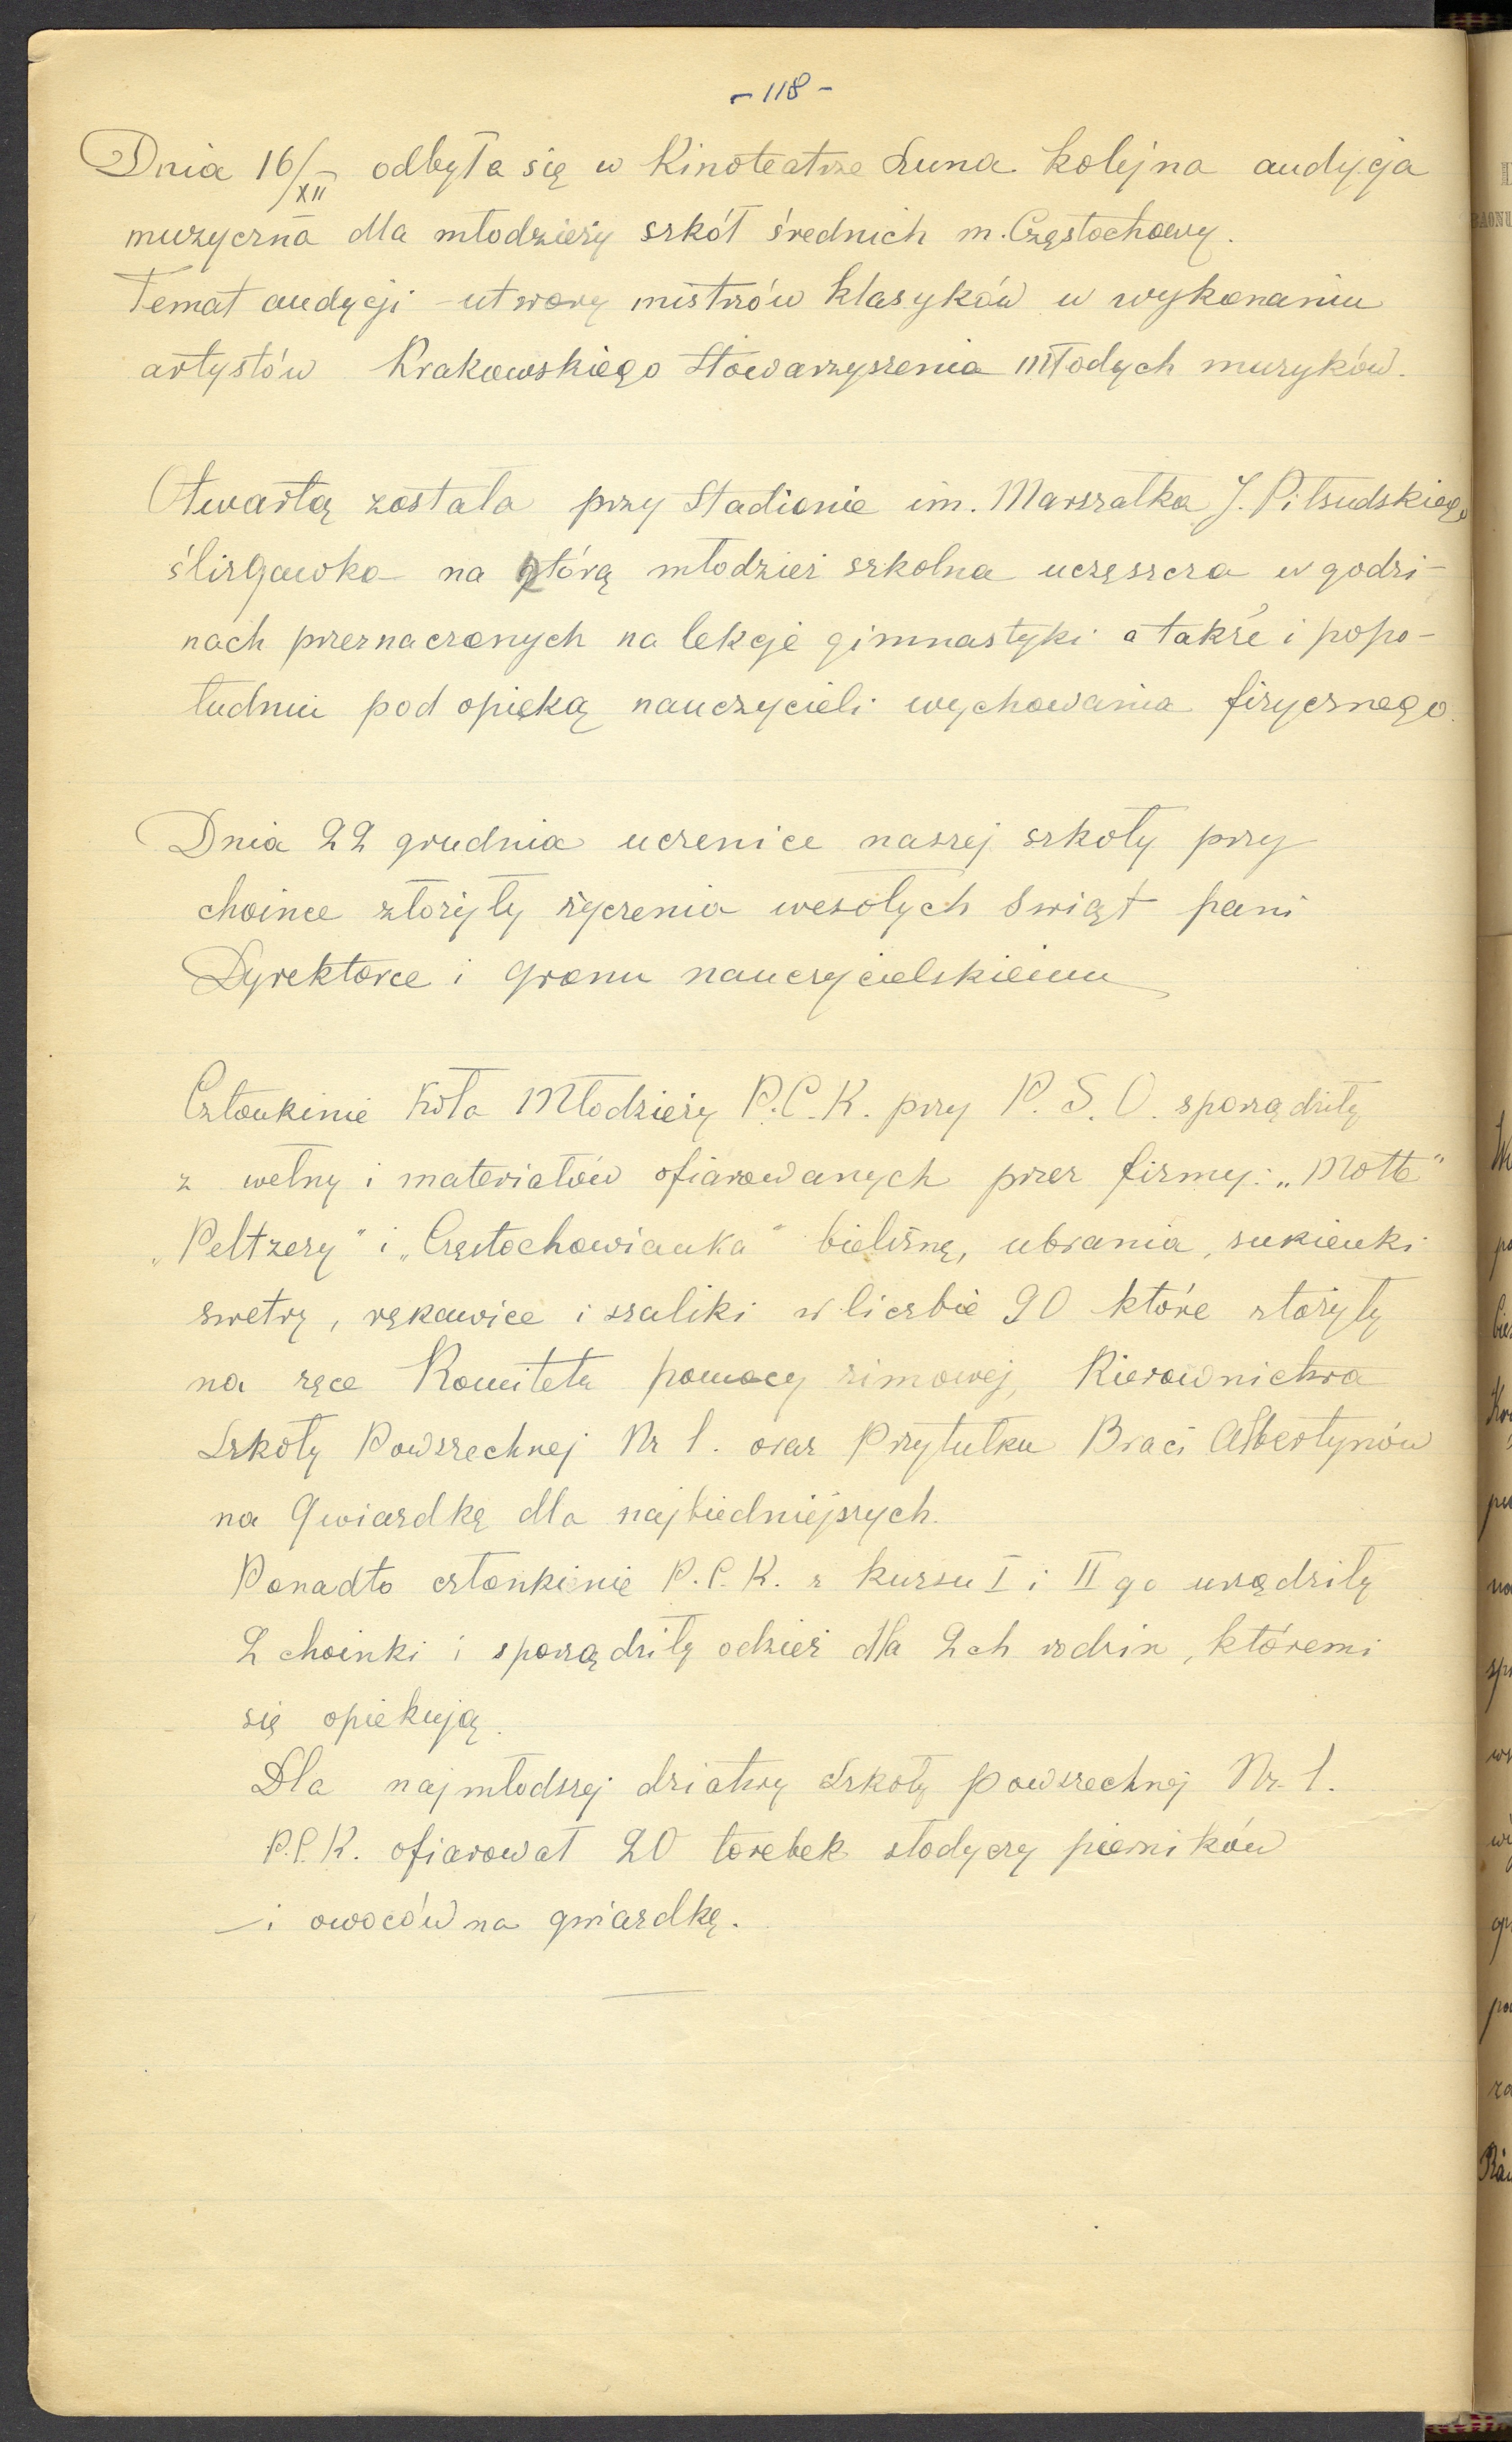 - 118 -
Dnia 16/XII odbyła się w Kinoteatrze Luna kolejna audycja
muzyczna dla młodzieży szkół średnich m. Częstochowy.
Temat audycji - utwory mistrzów klasyków w wykonaniu
artystów Krakowskiego Stowarzyszenia młodych muzyków.
Otwartą została przy Stadionie im. Marszałka J. Piłsudskiego
ślizgawka na którą młodzież szkolna uczęszcza w godzi-
nach przeznaczonych na lekcje gimnastyki a także i popo-
łudniu pod opieką nauczycieli wychowania fizycznego.
Dnia 22 grudnia uczenice naszej szkoły przy
choince złożyły życzenia wesołych Świąt pani
Dyrektorce i Gronu nauczycielskiemu
Członkinie Koła Młodzieży P.C.K. przy P.S.O. sporządziły
z wełny i materiałów ofiarowanych przez firmy: „Motte"
„Peltzery" i „Częstochowianka" bieliznę, ubrania, sukienki
swetry, rękawice i szaliki w liczbie 90 które złożyły
na ręce Komitetu pomocy zimowej, Kierownictwa
Szkoły Powszechnej Nr 1. oraz Przytułku Braci Albertynów
na Gwiazdkę dla najbiedniejszych.
Ponadto członkinie P.C.K. z kursu I i II go urządziły
2 choinki i sporządziły odzież dla 2ch rodzin, któremi
się opiekują.
Dla najmłodszej dziatwy Szkoły powszechnej Nr. 1.
P.C.K. ofiarował 20 torebek słodyczy pierników
i owoców na gwiazdkę.